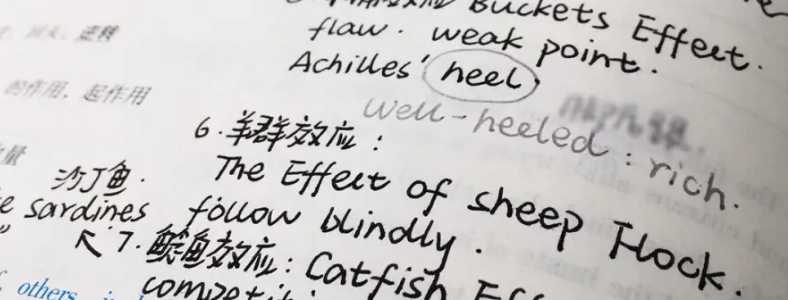 效应 Buckets Effect.
flaw. weak point.
逆转
Achilles' heel.
的作用、起作用
well-heeled : rich.
量
6. 羊群效应:
沙丁鱼.
The Effect of sheep Flock.
sardines
follow blindly.
↖ 7. 鲶鱼效应: Catfish Eff
others